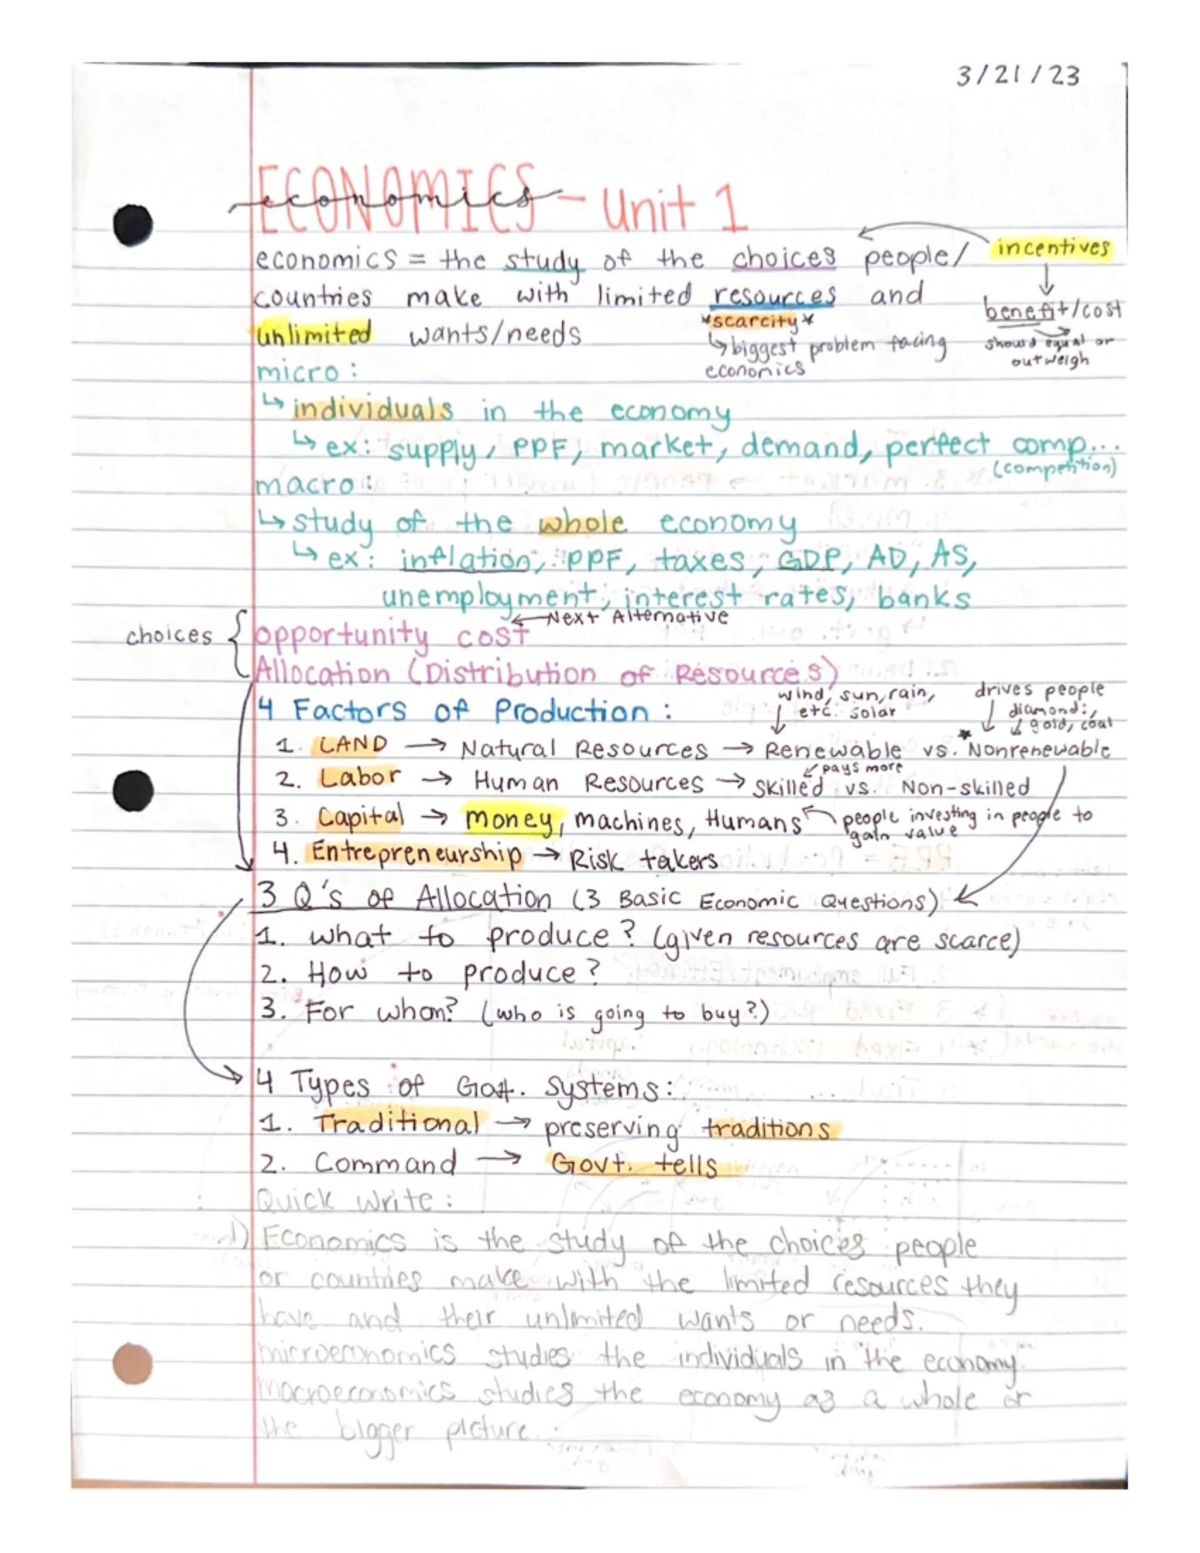 3/21/23
ECONOMICS - Unit 1
economics
economics = the study of the choices people/ incentives
countries make with limited resources and benefit/cost
unlimited wants/needs *scarcity* should equal or
↳biggest problem facing outweigh
economics
micro:
↳ individuals in the economy
↳ ex: supply, PPF, market, demand, perfect comp...
(competition)
macro:
↳ study of the whole economy
↳ ex: inflation, PPF, taxes, GDP, AD, AS,
unemployment, interest rates, banks
←Next Alternative
choices { opportunity cost
Allocation (Distribution of Resources)
wind, sun, rain, drives people
4 Factors of Production: etc. solar diamond,
gold, coal
1. LAND → Natural Resources → Renewable vs. *Nonrenewable
pays more
2. Labor → Human Resources → Skilled vs. Non-skilled
3. Capital → money, machines, Humans people investing in people to
gain value
4. Entrepreneurship → Risk takers
3 Q's of Allocation (3 Basic Economic Questions)
1. what to produce? (given resources are scarce)
2. How to produce?
3. For whom? (who is going to buy?)
4 Types of Govt. Systems:
1. Traditional → preserving traditions
2. Command → Govt. tells
Quick Write:
1) Economics is the study of the choices people
or countries make with the limited resources they
have and their unlimited wants or needs.
microeconomics studies the individuals in the economy.
macroeconomics studies the economy as a whole or
the bigger picture.